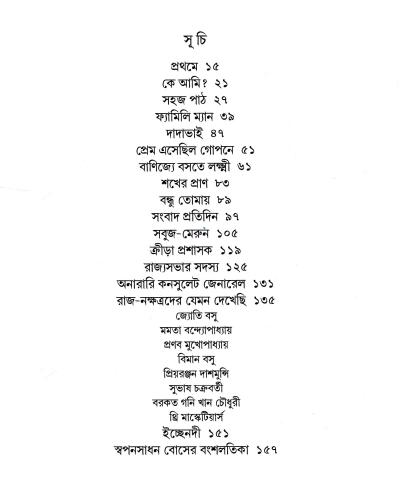 সূ চি
প্রথমে ১৫
কে আমি? ২১
সহজ পাঠ ২৭
ফ্যামিলি ম্যান ৩৯
দাদাভাই ৪৭
প্রেম এসেছিল গোপনে ৫১
বাণিজ্যে বসতে লক্ষ্মী ৬১
শখের প্রাণ ৮৩
বন্ধু তোমায় ৮৯
সংবাদ প্রতিদিন ৯৭
সবুজ-মেরুন ১০৫
ক্রীড়া প্রশাসক ১১৯
রাজ্যসভার সদস্য ১২৫
অনারারি কনসুলেট জেনারেল ১৩১
রাজ-নক্ষত্রদের যেমন দেখেছি ১৩৫
জ্যোতি বসু
মমতা বন্দ্যোপাধ্যায়
প্রণব মুখোপাধ্যায়
বিমান বসু
প্রিয়রঞ্জন দাশমুন্সি
সুভাষ চক্রবর্তী
বরকত গনি খান চৌধুরী
থ্রি মাস্কেটিয়ার্স
ইচ্ছেনদী ১৫১
স্বপনসাধন বোসের বংশলতিকা ১৫৭